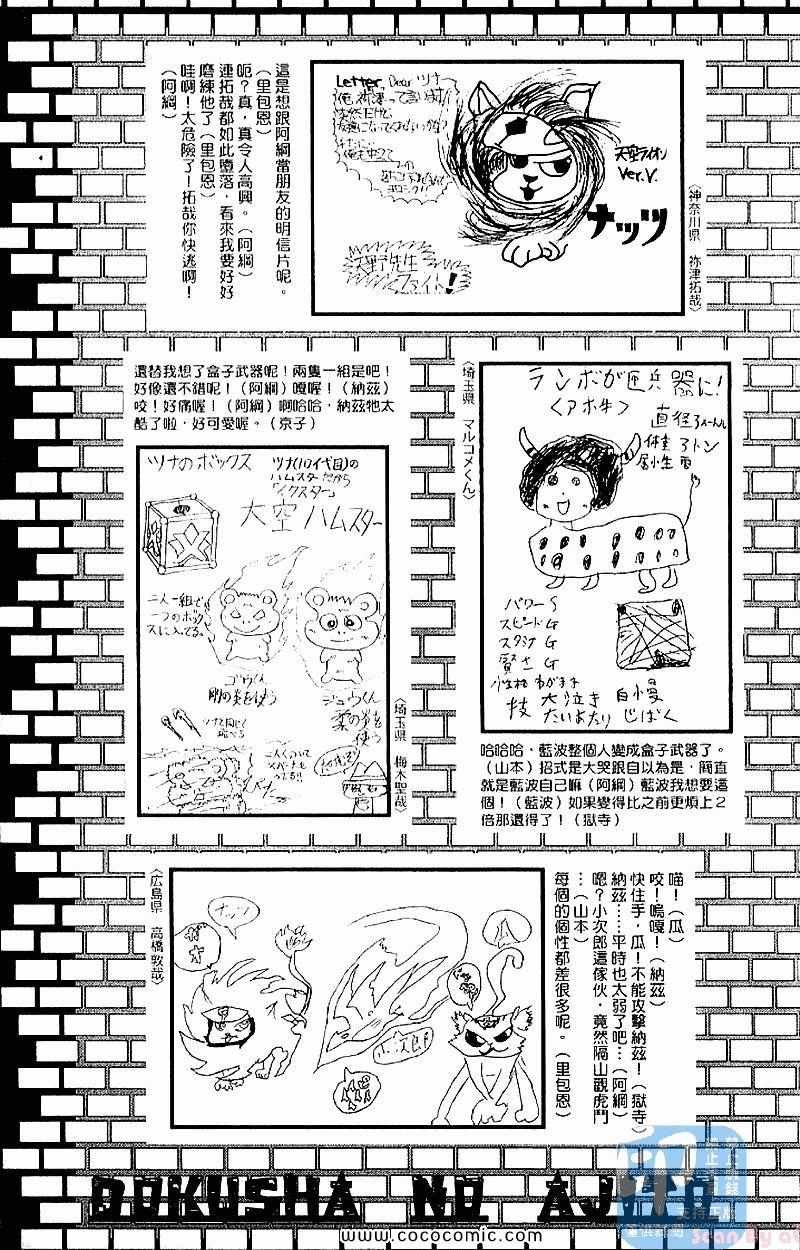 這是想跟阿綱當朋友的明信片呢。
(里包恩)
呃？真，真令人高興。(阿綱)
連拓哉都如此墮落，看來我要好好
磨練他了(里包恩)
哇啊！太危險了！拓哉你快逃啊！
(阿綱)
Letter. Dear ツナ
天空ライオン
Ver.V.
ナッツ
天野先生
ファイト!
〈神奈川県 祢津拓哉〉
還替我想了盒子武器呢！兩隻一組是吧！
好像還不錯呢！(阿綱)嘎喔！(納茲)
咬！好痛喔！(阿綱)啊哈哈，納茲牠太
酷了啦，好可愛喔。(京子)
ツナのボックス
ハムスターだから
大空ハムスター
二人一組で
一つのボック
スに入ってる。
ゴウくん
剛の炎を使う
ジュウくん
柔の炎を
使う
〈埼玉県 梅木聖哉〉
〈埼玉県 マルコメくん〉
ランボが匣兵器に!
〈アホ牛〉
直径2メートル
体重2トン
属性雷
パワー S
スピード G
スタミナ G
賢さ G
性格 わがまま
技 大泣き 自慢
たいあたり じばく
哈哈哈，藍波整個人變成盒子武器了。
(山本)招式是大哭跟自以為是，簡直
就是藍波自己嘛(阿綱)藍波我想要這
個！(藍波)如果變得比之前更煩上２
倍那還得了！(獄寺)
喵！(瓜)
咬！嗚嘎！(納茲)
快住手，瓜！不能攻擊納茲！(獄寺)
納茲……平時也太弱了吧…(阿綱)
嗯？小次郎這傢伙，竟然隔山觀虎鬥
…(山本)
每個的個性都差很多呢。(里包恩)
〈広島県 高橋敦哉〉
ナッツ
ガオ
瓜
小次郎
DOKUSHA NO AJITO
www.cococomic.com
Scan By at